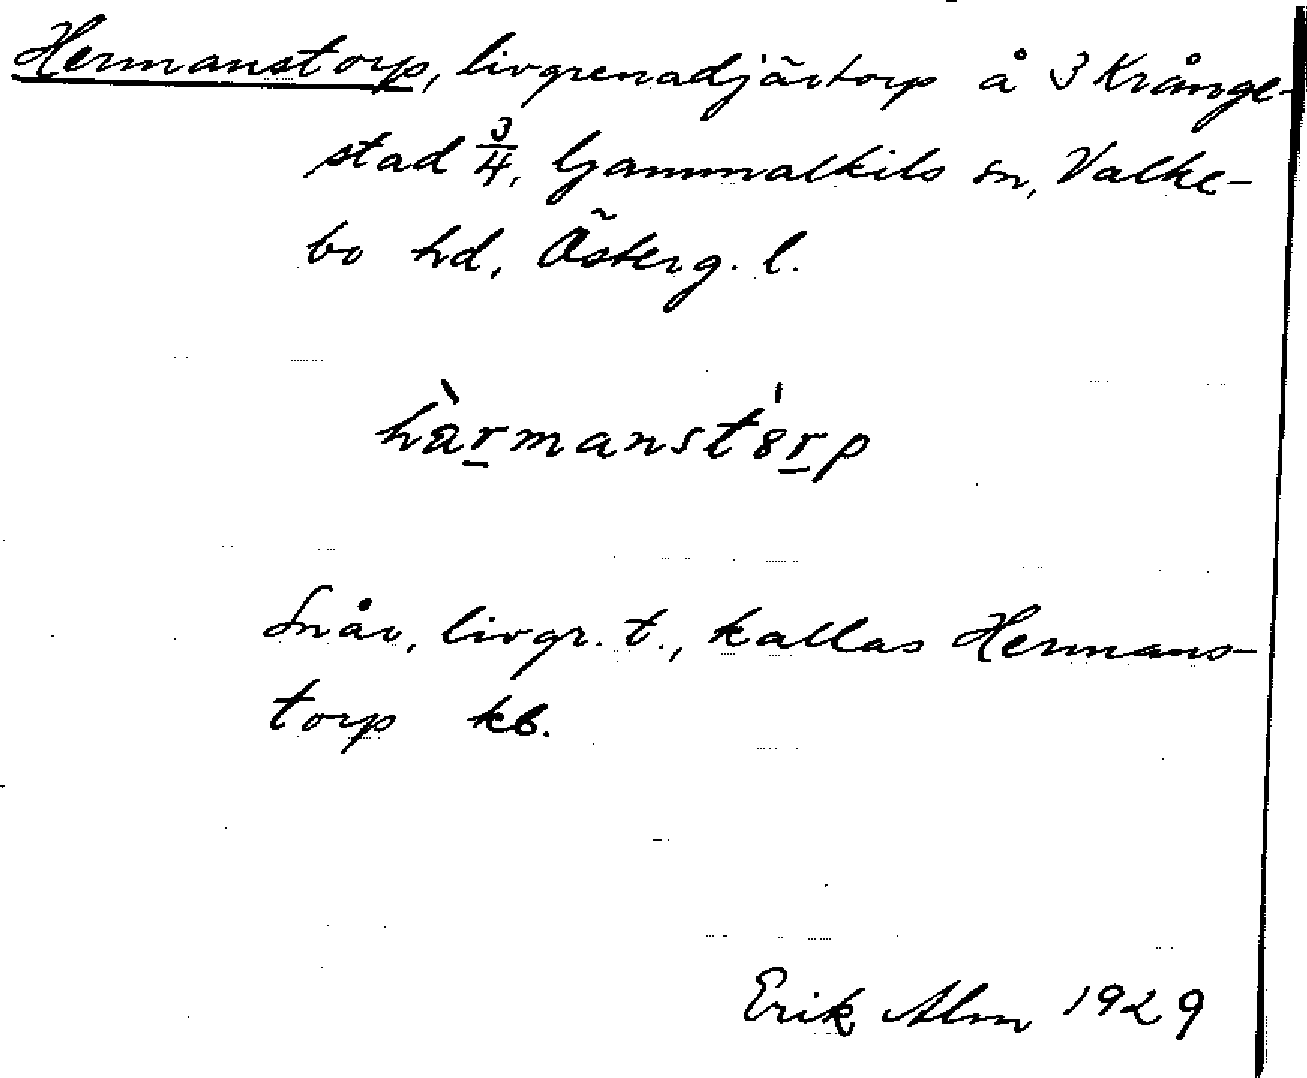 Hermanstorp, livgrenadjärtorp å 3 Krånge-
stad 3/4, Gammalkils sn, Valke-
bo hd, Österg. l.
hàrmanst'ɞrp
Snår, livgr. t., kallas Hermans-
torp kb.
Erik Alm 1929